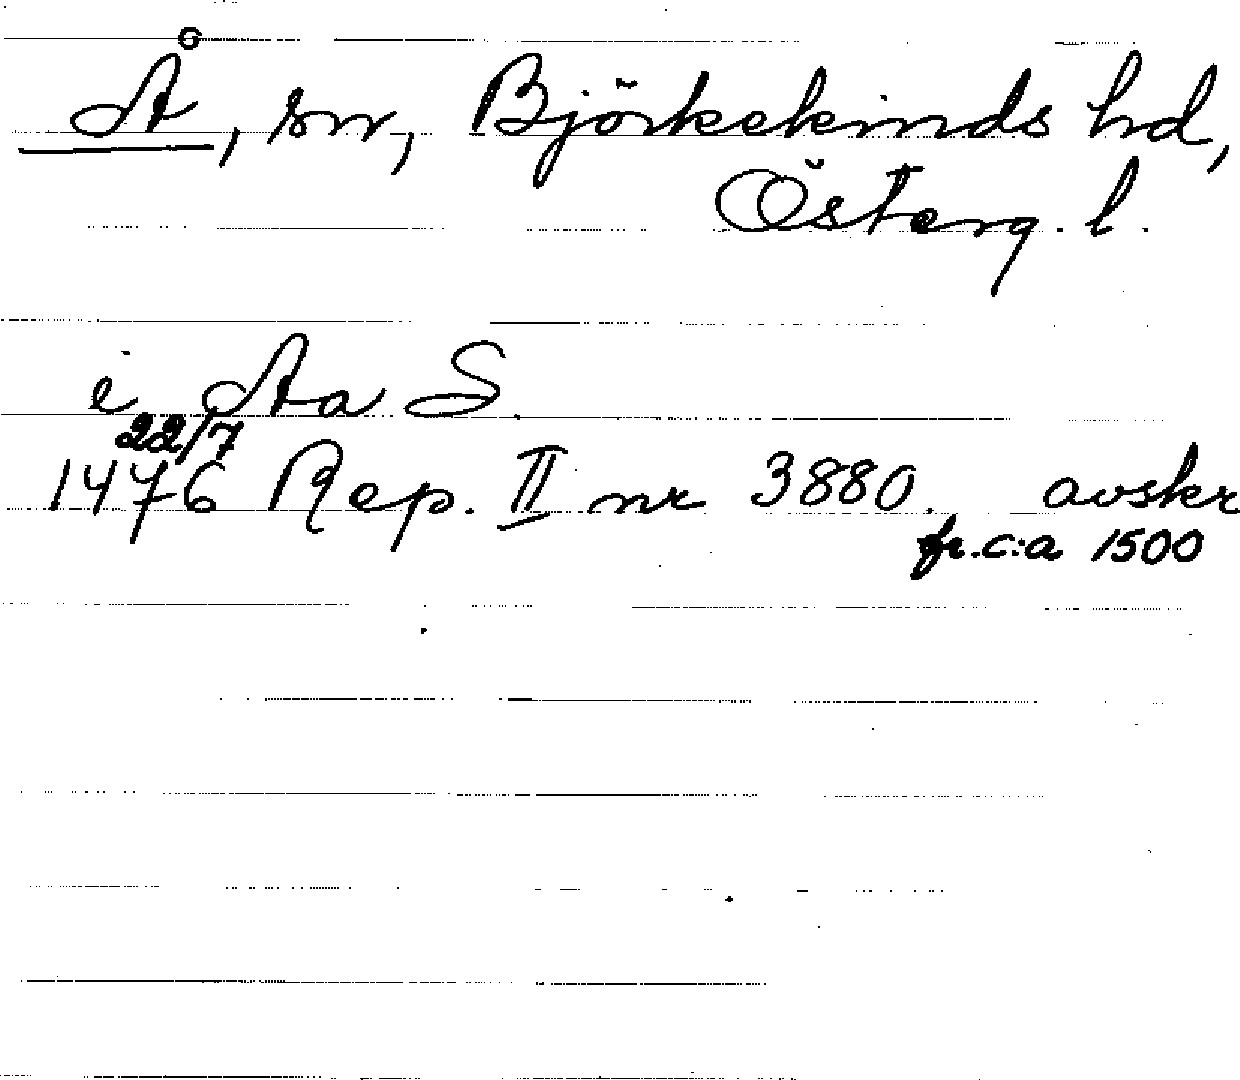 Å, sn, Björkekinds hd,
Österg. l.
i Aa S.
22/7
1476 Rep. II nr 3880. avskr
fr. c:a 1500